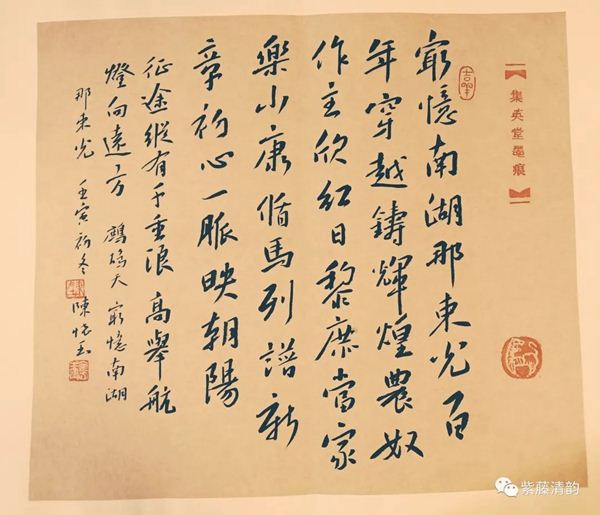 集英堂墨痕
最憶南湖那束光百
年穿越鑄輝煌農奴
作主欣紅日黎庶當家
樂小康循馬列譜新
章初心一脈映朝陽
征途縱有千重浪高舉航
燈向遠方 鷓鴣天 最憶南湖
那束光 壬寅初冬 陳
紫藤清韵